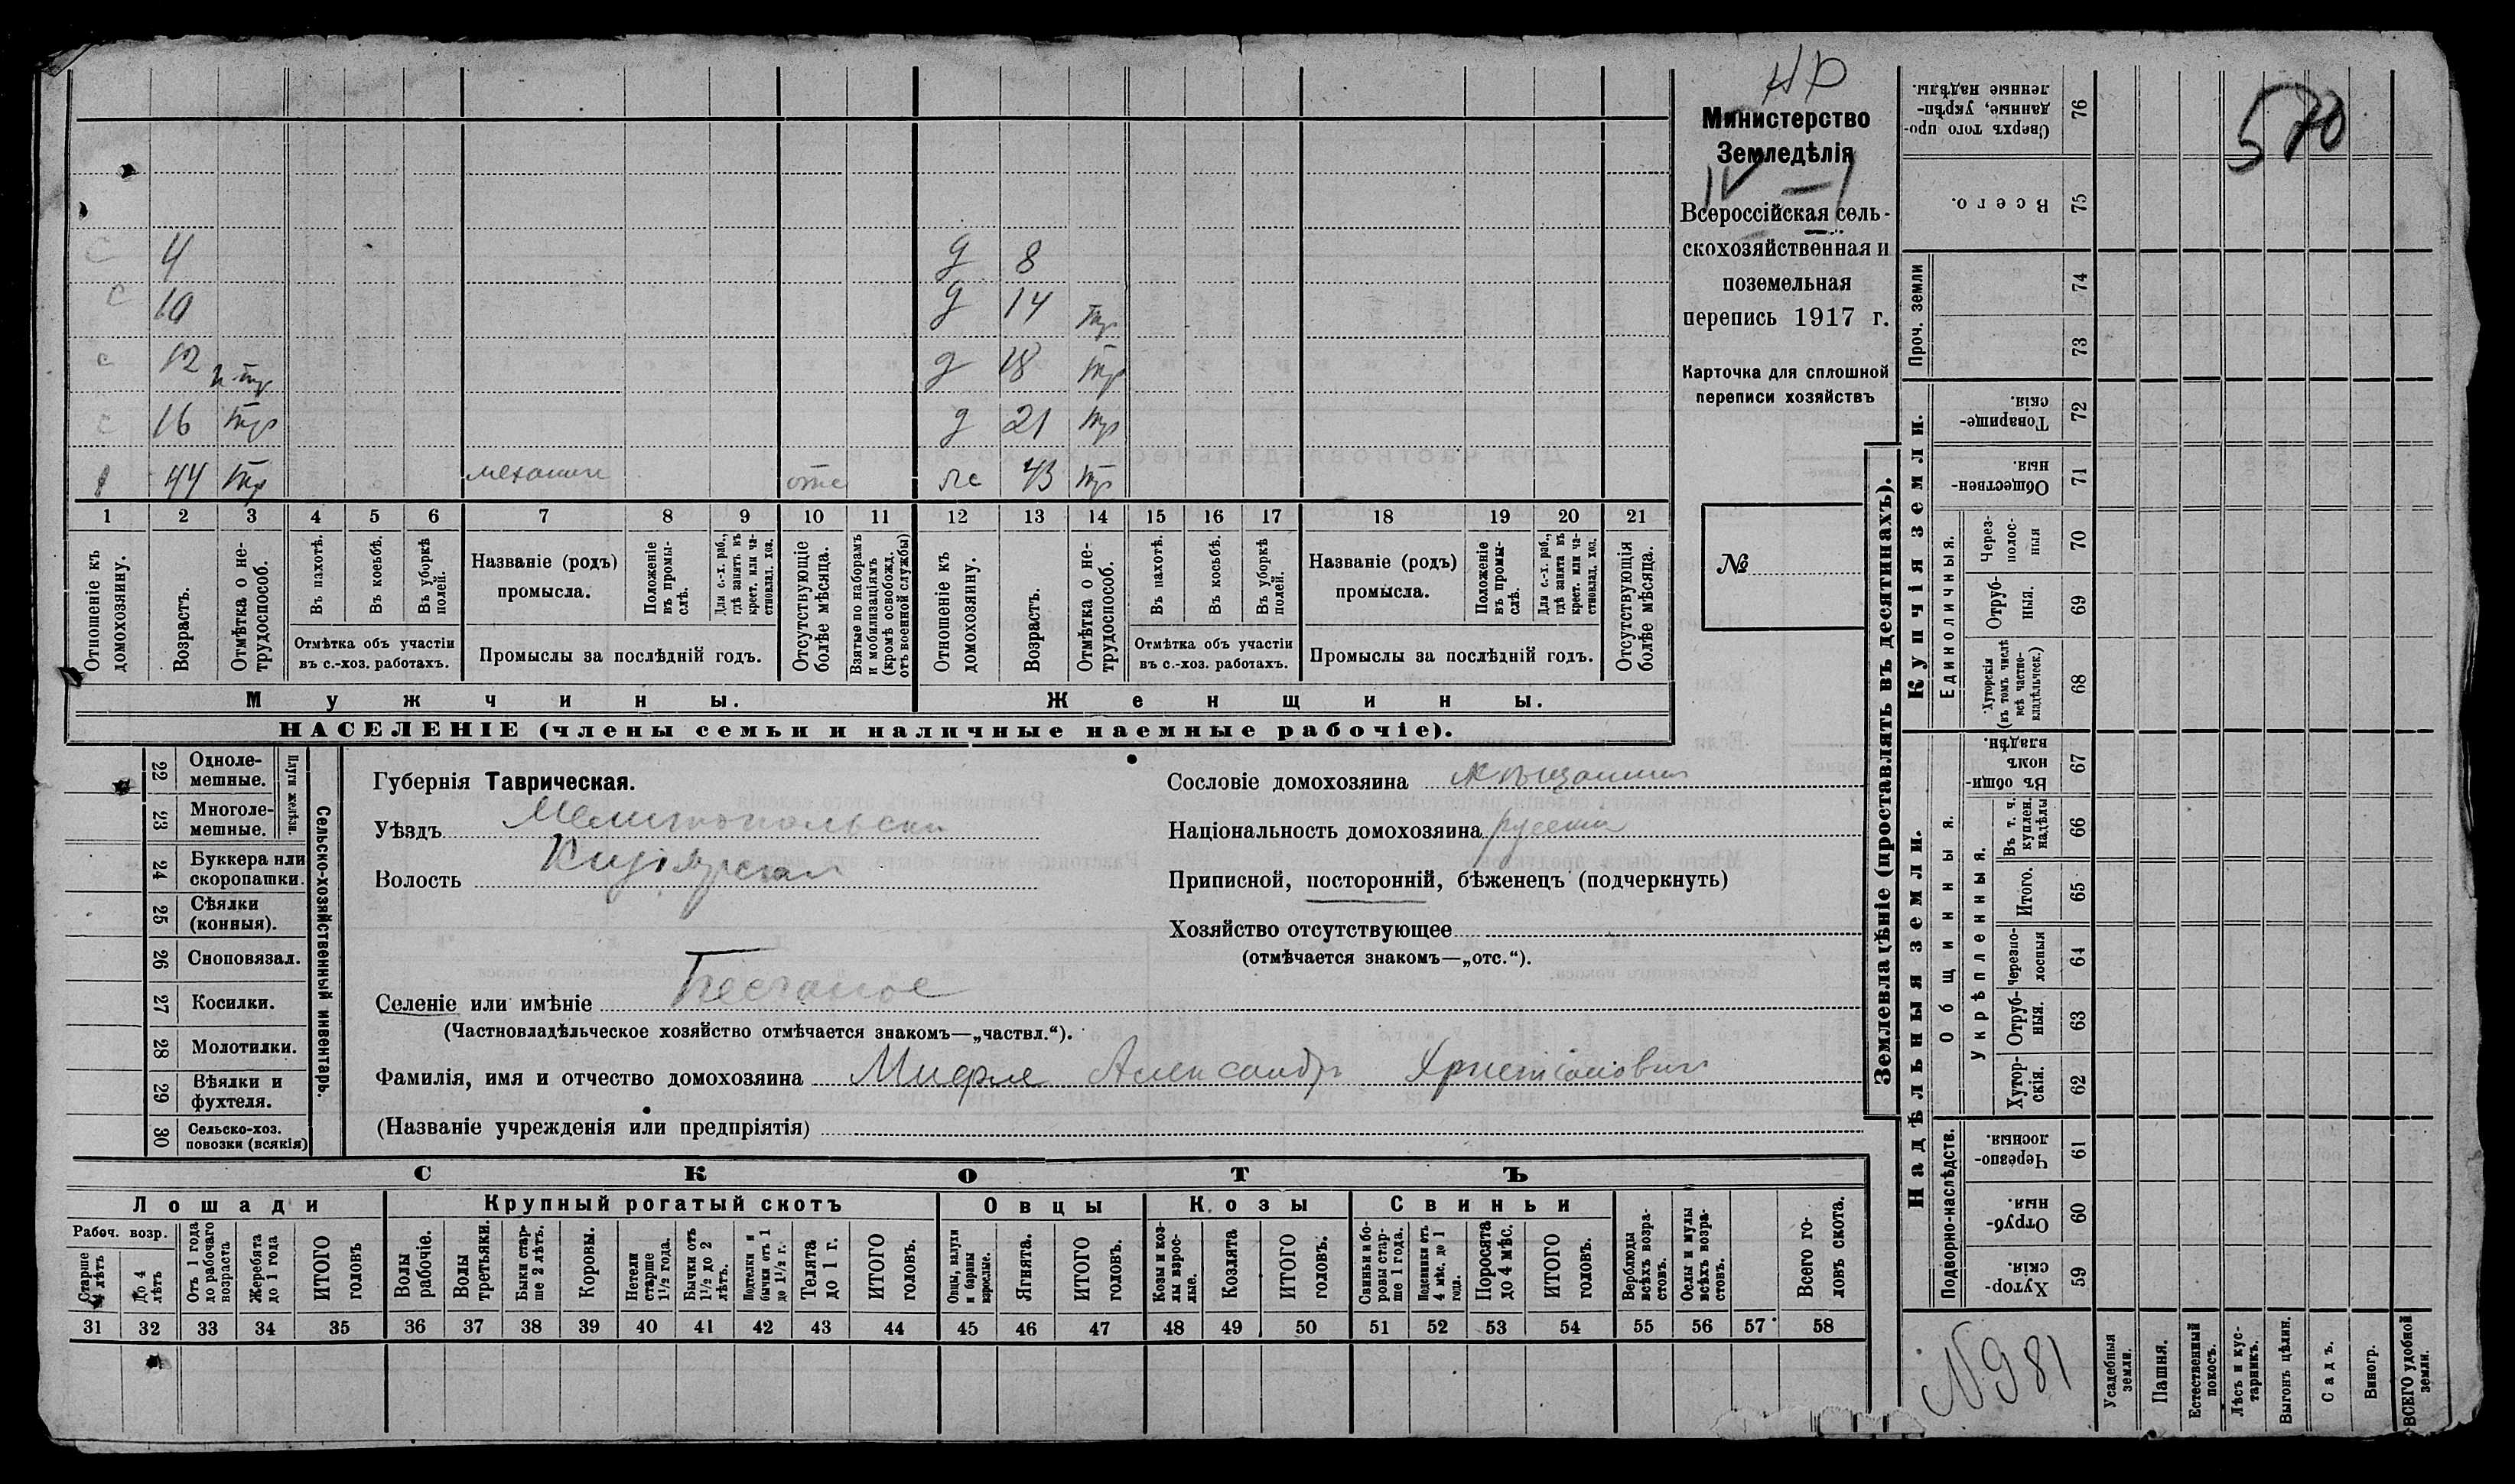 НР
Министерство
Земледѣлія
IV – 1
Всероссійская сель-
скохозяйственная и
поземельная
перепись 1917 г.
Карточка для сплошной
переписи хозяйствъ
№
570
с 4 д 8
с 10 д 14 тр
с 12 н тр д 18 тр
с 16 тр д 21 тр
1 44 тр механик отс же 43 тр
1 2 3 4 5 6 7 8 9 10 11 12 13 14 15 16 17 18 19 20 21
Отношеніе къ домохозяину.
Возрастъ.
Отмѣтка о не-трудоспособ.
Въ пахотѣ.
Въ косьбѣ.
Въ уборкѣ полей.
Отмѣтка объ участіи
въ с.-хоз. работахъ.
Названіе (родъ)
промысла.
Положеніе въ промы-слѣ.
Для с.-х. раб., гдѣ занятъ въ крест. или ча-стновлад. хоз.
Промыслы за послѣдній годъ.
Отсутствующіе болѣе мѣсяца.
Взятые по наборамъ и мобилизаціямъ (кромѣ освобожд. отъ военной службы)
Отношеніе къ домохозяину.
Возрастъ.
Отмѣтка о не-трудоспособ.
Въ пахотѣ.
Въ косьбѣ.
Въ уборкѣ полей.
Отмѣтка объ участіи
въ с.-хоз. работахъ.
Названіе (родъ)
промысла.
Положеніе въ промы-слѣ.
Для с.-х. раб., гдѣ занята въ крест. или ча-стновлад. хоз.
Промыслы за послѣдній годъ.
Отсутствующія болѣе мѣсяца.
Мужчины.
Женщины.
НАСЕЛЕНІЕ (члены семьи и наличные наемные рабочіе).
Сельско-хозяйственный инвентарь.
Плуги желѣзн.
22 Одноле-мешные.
23 Многоле-мешные.
24 Буккера или скоропашки.
25 Сѣялки (конныя).
26 Сноповязал.
27 Косилки.
28 Молотилки.
29 Вѣялки и фухтеля.
30 Сельско-хоз. повозки (всякія)
Губернія Таврическая.
Уѣздъ Мелитопольски
Волость Кизіярская
Селеніе или имѣніе Песчаное
(Частновладѣльческое хозяйство отмѣчается знакомъ—„частвл.“).
Фамилія, имя и отчество домохозяина Мифле Александр Христіанович
(Названіе учрежденія или предпріятія)
Сословіе домохозяина мѣщанин
Національность домохозяина русски
Приписной, посторонній, бѣженецъ (подчеркнуть)
Хозяйство отсутствующее
(отмѣчается знакомъ—„отс.“).
СКОТЪ
Лошади
Крупный рогатый скотъ
Овцы
Козы
Свиньи
Рабоч. возр.
Старше 4 лѣтъ
До 4 лѣтъ
Отъ 1 года до рабочаго возраста
Жеребята до 1 года
ИТОГО головъ
Волы рабочіе.
Волы третьяки.
Быки стар-ше 2 лѣтъ.
Коровы.
Нетели старше 1½ года.
Бычки отъ 1½ до 2 лѣтъ.
Подтелки и бычки отъ 1 до 1½ г.
Телята до 1 г.
ИТОГО головъ.
Овцы, валухи и бараны взрослые.
Ягнята.
ИТОГО головъ.
Козы и коз-лы взрос-лые.
Козлята
ИТОГО головъ.
Свиньи и бо-ровы стар-ше 1 года.
Подсвинки отъ 4 мѣс. до 1 года.
Поросята до 4 мѣс.
ИТОГО головъ.
Верблюды всѣхъ возра-стовъ.
Ослы и мулы всѣхъ возра-стовъ.
Всего го-ловъ скота.
31 32 33 34 35 36 37 38 39 40 41 42 43 44 45 46 47 48 49 50 51 52 53 54 55 56 57 58
Землевладѣніе (проставлять въ десятинахъ).
Сверхъ того про-данные, укрѣп-ленные надѣлы. 76
Всего. 75
Проч. земли
74
73
Купчія земли.
Товарище-скія. 72
Обществен-ныя. 71
Единоличныя.
Через-полос-ныя 70
Отруб-ныя. 69
Хуторскія (въ томъ числѣ всѣ частно-владѣльческ.) 68
Надѣльныя земли.
Общинныя.
Въ общи-номъ владѣн. 67
Укрѣпленныя.
Въ т. ч. куплен. надѣлы 66
Итого. 65
Черезпо-лосныя 64
Отруб-ныя. 63
Хутор-скія. 62
Подворно-наслѣдств.
Черезпо-лосныя. 61
Отруб-ныя. 60
Хутор-скія. 59
N 981
Усадебныя земли.
Пашня.
Естественный покосъ.
Лѣсъ и кус-тарникъ.
Выгонъ цѣлин.
Садъ.
Виногр.
ВСЕГО удобной земли.